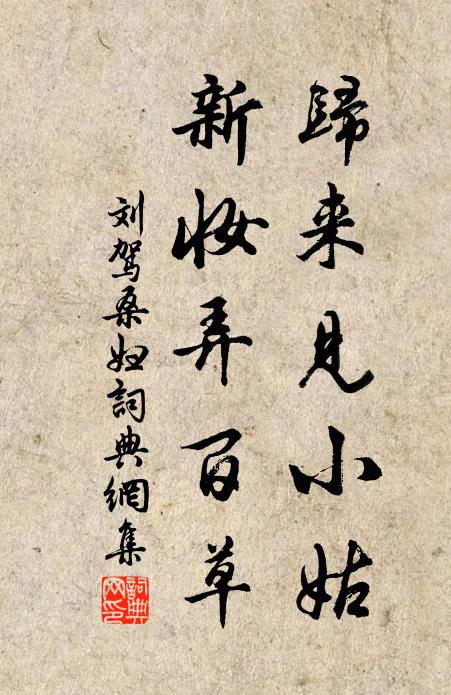 歸来見小姑
新妝弄百草
刘駕桑婦詞典網集
詞典网印